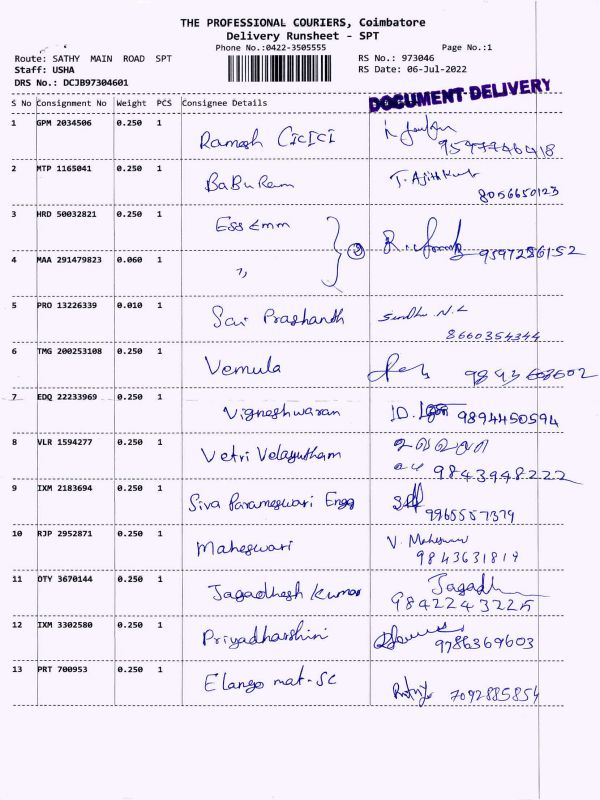 THE PROFESSIONAL COURIERS, Coimbatore
Delivery Runsheet - SPT
Phone No.:0422-3505555
Page No.:1
Route: SATHY MAIN ROAD SPT
RS No.: 973046
Staff: USHA
RS Date: 06-Jul-2022
DRS No.: DCJB97304601
DOCUMENT DELIVERY
S No Consignment No Weight PCS Consignee Details
1 GPM 2034506 0.250 1 Ramesh CICICI
2 MTP 1165041 0.250 1 BaBu Ram T. Ajith Kumar
8056650123
3 HRD 50032821 0.250 1 Ess Emm
4 MAA 291479823 0.060 1 " 2 9597286152
5 PRO 13226339 0.010 1 Sai Prashanth Sindhu N.L
8660354344
6 TMG 200253108 0.250 1 Vemula
7 EDQ 22233969 0.250 1 Vigneshwaran 9894450594
8 VLR 1594277 0.250 1 Vetri Velayutham
9843948222
9 IXM 2183694 0.250 1 Siva Parameswari Engg
9965557379
10 RJP 2952871 0.250 1 Maheswari V. Maheswari
9843631819
11 OTY 3670144 0.250 1 Jagadhesh kumar Jagadh
9842243225
12 IXM 3302580 0.250 1 Priyadharshini 9786369603
13 PRT 700953 0.250 1 Elango mat-SC 7092885854